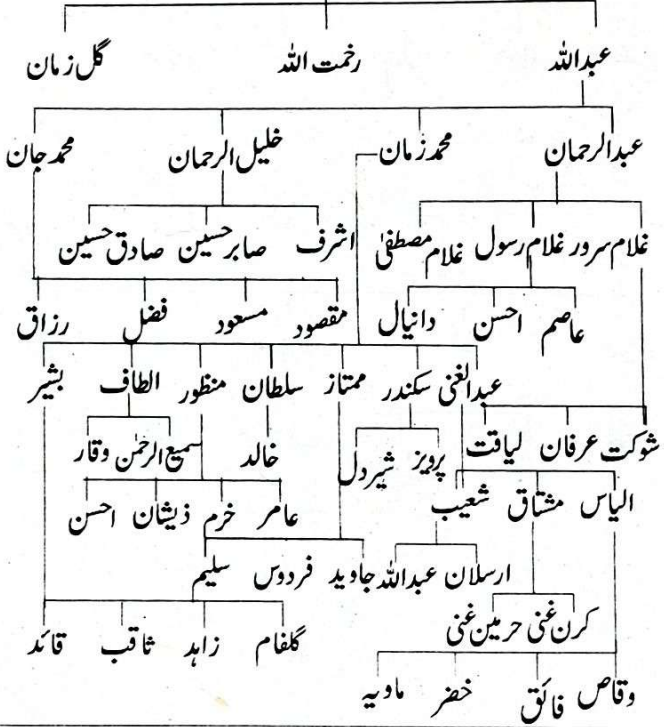 عبداللہ رخمت اللہ گل زمان
عبدالرحمان محمد زمان خلیل الرحمان محمد جان
غلام سرور غلام رسول غلام مصطفیٰ اشرف صابر حسین صادق حسین
عاصم احسن دانیال مقصود مسعود فضل رزاق
عبدالغنی سکندر ممتاز سلطان منظور الطاف بشیر
شوکت عرفان لیاقت پرویز شیردل خالد سمیع الرحمٰن وقار
الیاس مشتاق شعیب عامر خرم ذیشان احسن
ارسلان عبداللہ جاوید فردوس سلیم
کرن غنی حرمین غنی گلفام زاہد ثاقب قائد
وقاص فائق خضر ماویہ